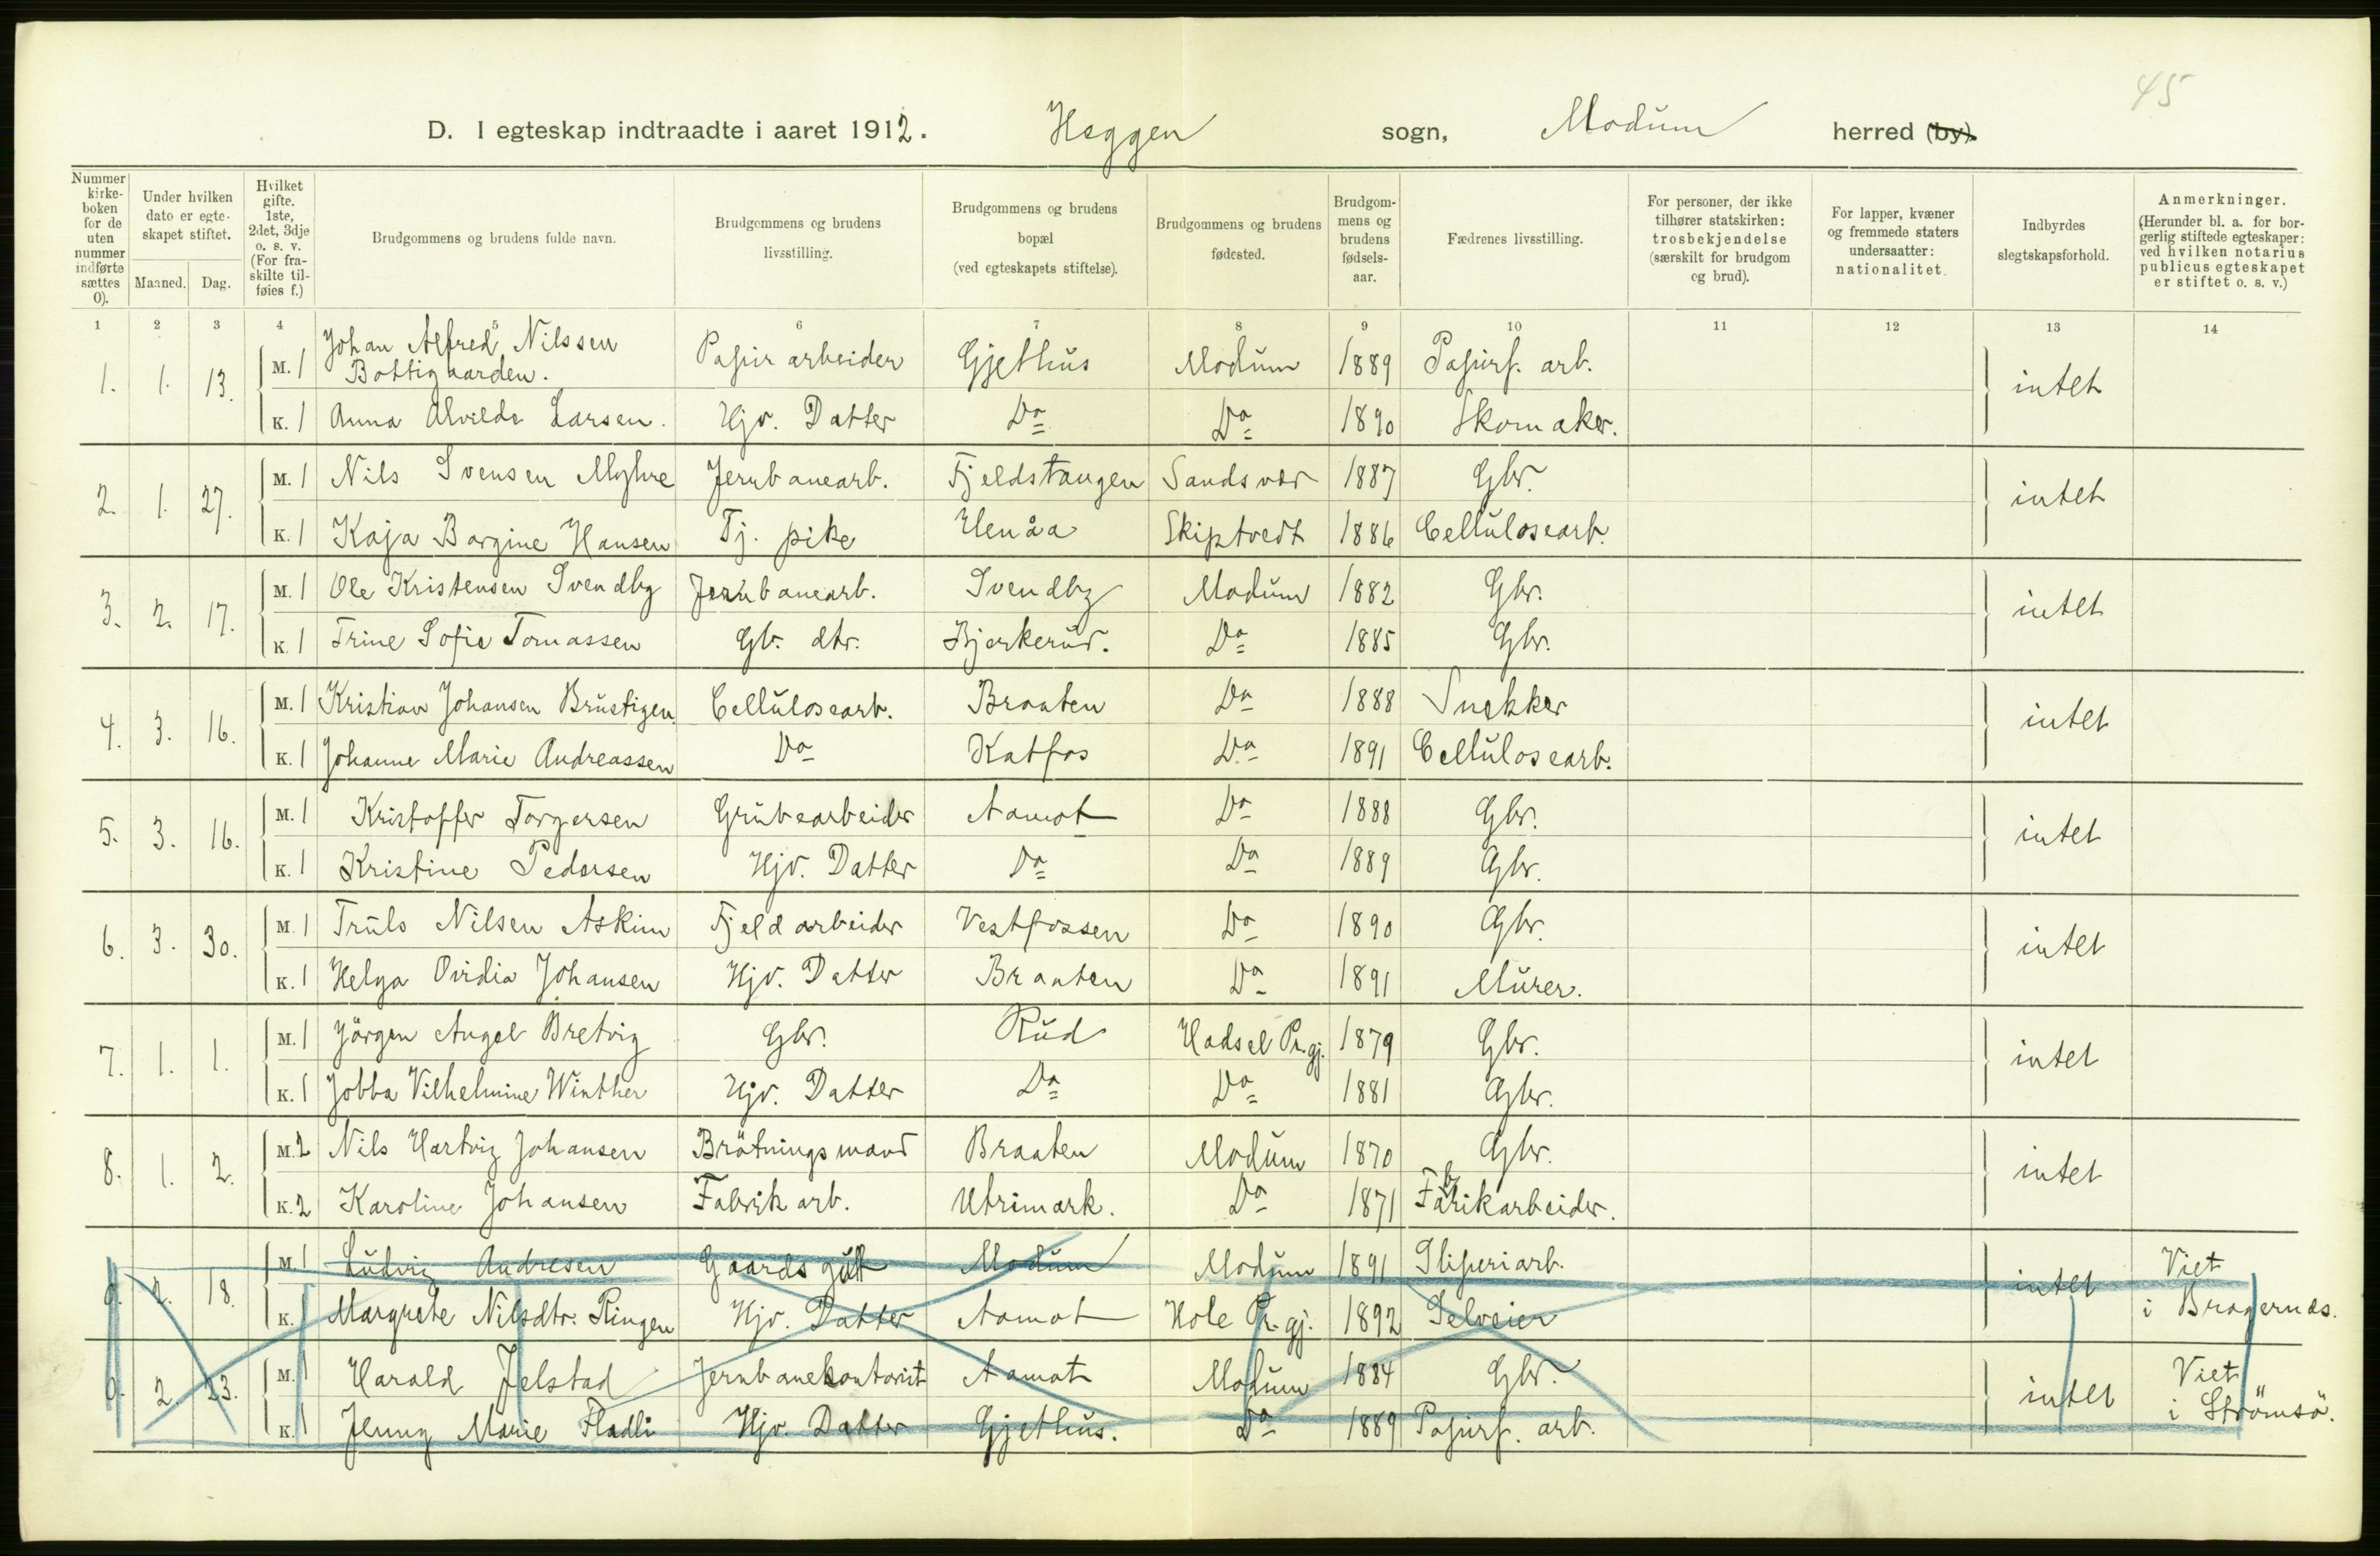 45
D. I egteskap indtraadte i aaret 1912. Heggen sogn, Modum herred (by).
Nummer kirke-boken for de uten nummer indførte sættes 0). | Under hvilken dato er egte-skapet stiftet. Maaned. Dag. | Hvilket gifte. 1ste, 2det, 3dje o. s. v. (For fra-skilte til-føies f.) | Brudgommens og brudens fulde navn. | Brudgommens og brudens livsstilling. | Brudgommens og brudens bopæl (ved egteskapets stiftelse). | Brudgommens og brudens fødested. | Brudgom-mens og brudens fødsels-aar. | Fædrenes livsstilling. | For personer, der ikke tilhører statskirken: trosbekjendelse (særskilt for brudgom og brud). | For lapper, kvæner og fremmede staters undersaatter: nationalitet. | Indbyrdes slegtskapsforhold. | Anmerkninger. (Herunder bl. a. for bor-gerlig stiftede egteskaper: ved hvilken notarius publicus egteskapet er stiftet o. s. v.)
1 2 3 4 5 6 7 8 9 10 11 12 13 14
1. 1. 13. M. 1 Johan Alfred Nilssen Bottigaarden. Papir arbeider Gjethus Modum 1889 Papirf. arb. intet
K. 1 Anna Alvilde Larsen. Hjv. Datter Do Do 1890 Skomaker.
2. 1. 27. M. 1 Nils Svensen Myhre Jernbanearb. Fjeldstangen Sandsvær 1887 Gbr. intet
K. 1 Kaja Bargine Hansen Tj. pike Henåa Skiptvedt 1886 Cellulosearb.
3. 2. 17. M. 1 Ole Kristensen Svendby Jernbanearb. Svendby Modum 1882 Gbr. intet
K. 1 Trine Sofie Tomassen Gb. dtr. Bjerkerud. Do 1885 Gbr.
4. 3. 16. M. 1 Kristian Johansen Brustigen Cellulosearb. Braaten Do 1888 Snekker intet
K. 1 Johanne Marie Andreassen Do Katfos Do 1891 Cellulosearb.
5. 3. 16. M. 1 Kristoffer Torgersen Grubearbeider Aamot Do 1888 Gbr. intet
K. 1 Kristine Pedersen Hjv. Datter Do Do 1889 Gbr.
6. 3. 30. M. 1 Truls Nilsen Askim Fjeldarbeider Vestfossen Do 1890 Gbr. intet
K. 1 Helga Ovidia Johansen Hjv. Datter Braaten Do 1891 Murer.
7. 1. 1. M. 1 Jörgen Angel Bretvig Gbr. Rud Hadsel Pr.gj. 1879 Gbr. intet
K. 1 Jobba Vilhelmine Winther Hjv. Datter Do Do 1881 Gbr.
8. 1. 2. M. 2 Nils Hartvig Johansen Brötningsmand Braaten Modum 1870 Gbr. intet
K. 2 Karoline Johansen Fabrikarb. Utrimark. Do 1871 Fabrikarbeider.
0. 2. 18. M. 1 Ludvig Andresen Gaardsgutt Modum Modum 1891 Sliperiarb. intet Viet i Bragernes.
K. 1 Margrete Nilsdtr. Ringen Hjv. Datter Aamot Hole Pr.gj. 1892 Selveier
0. 2. 23. M. 1 Harald Jelstad Jernbanekontorist Aamot Modum 1884 Gbr. intet Viet i Strömsö.
K. 1 Jenny Marie Fladli Hjv. Datter Gjethus. Do 1889 Papirf. arb.